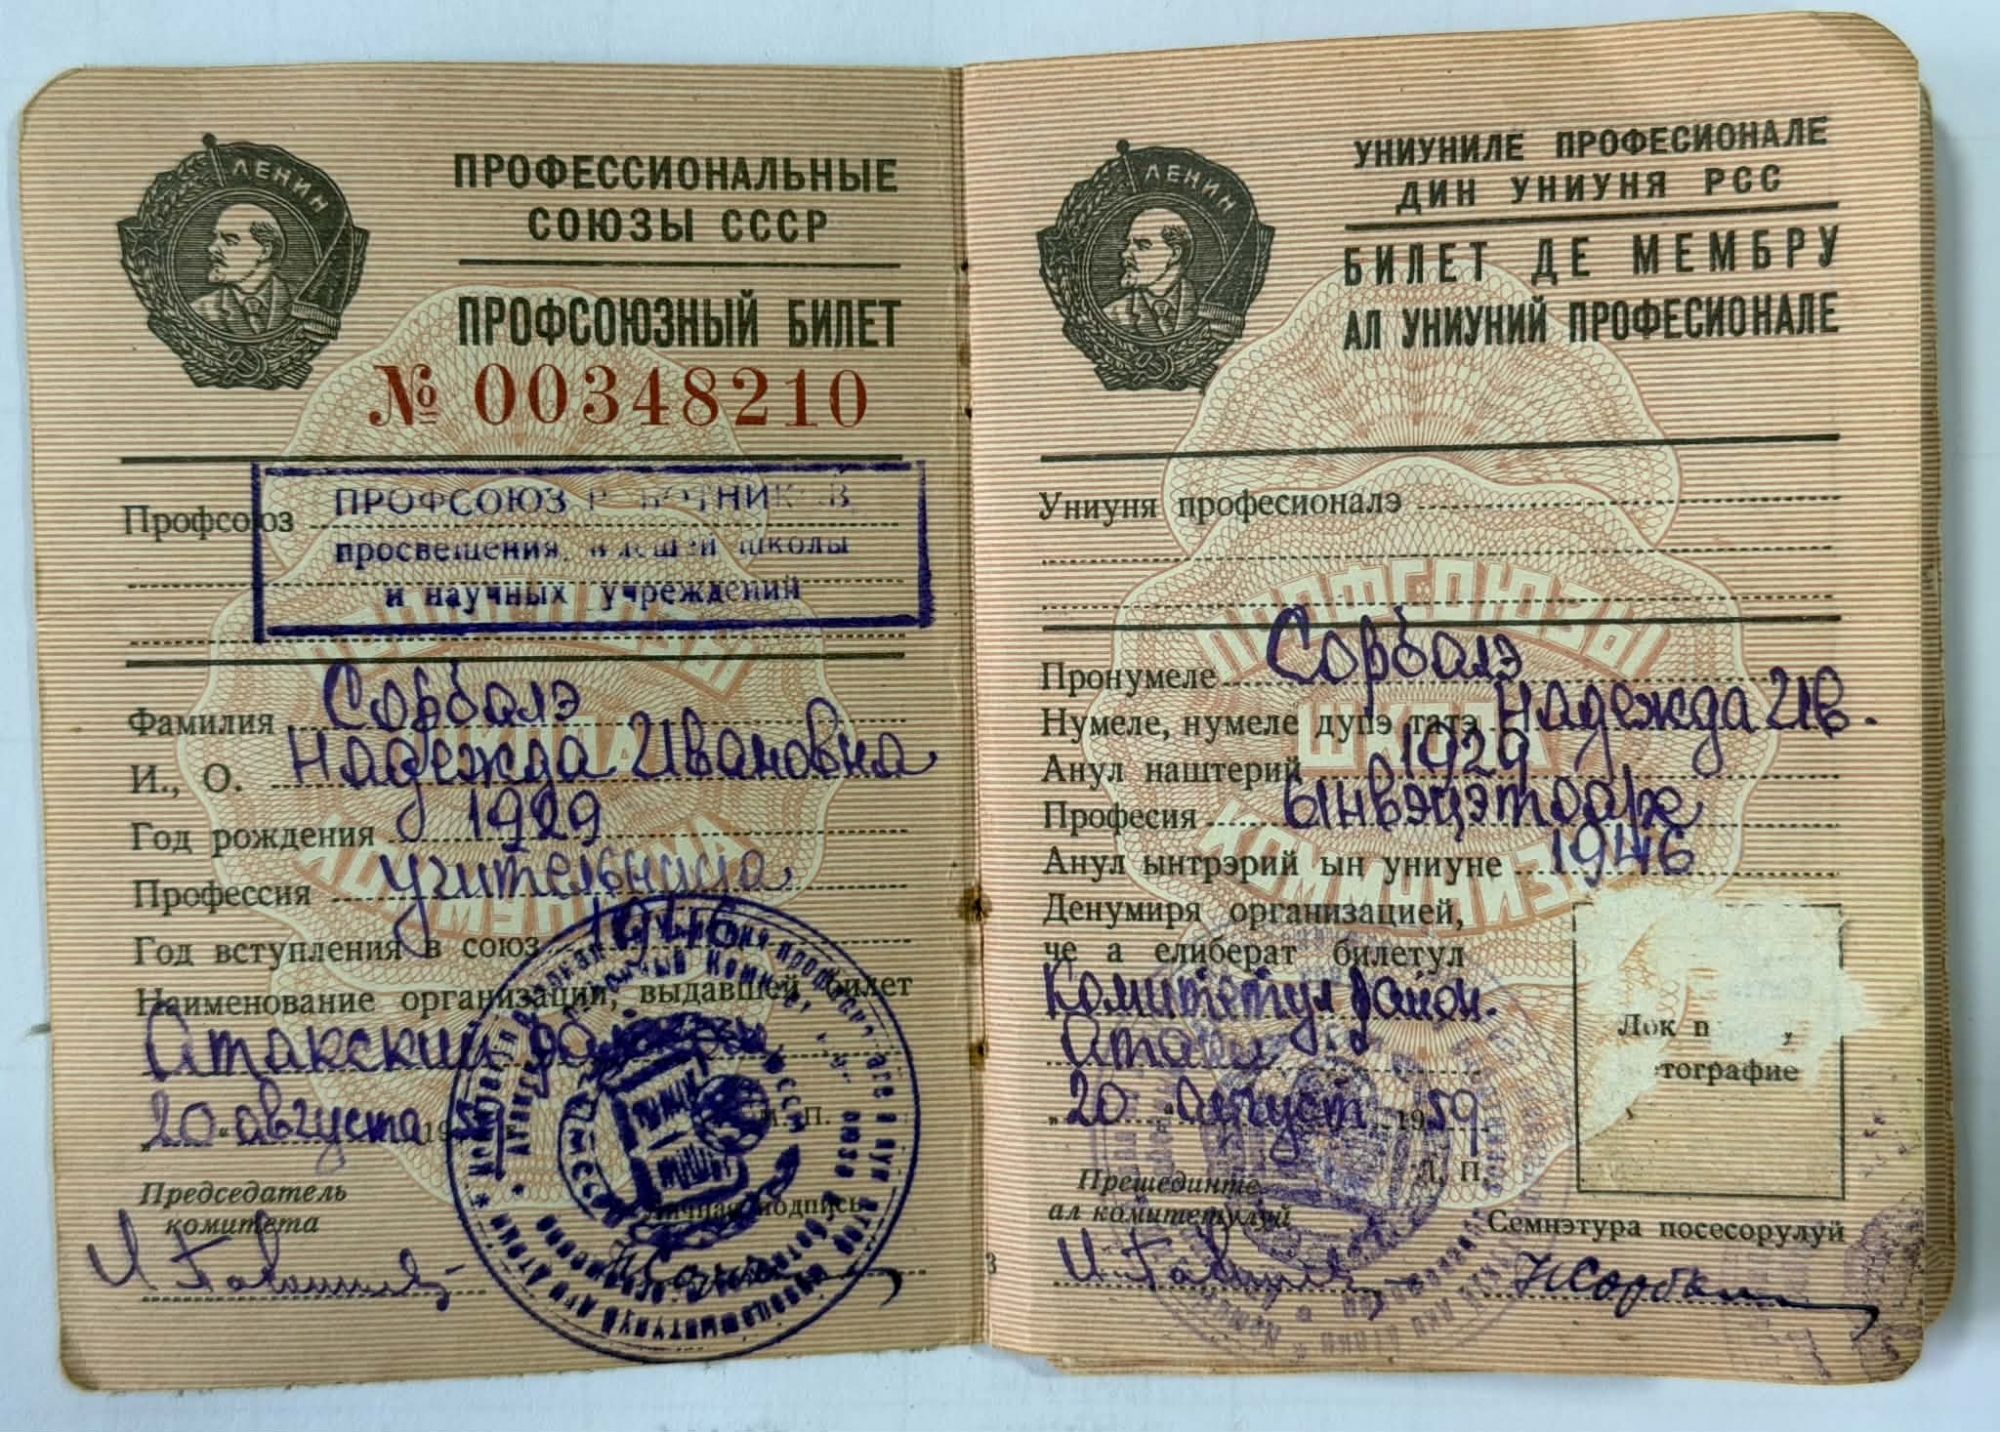 ЛЕНИН
ПРОФЕССИОНАЛЬНЫЕ
СОЮЗЫ СССР
ПРОФСОЮЗНЫЙ БИЛЕТ
№ 00348210
Профсоюз
ПРОФСОЮЗ РАБОТНИКОВ
просвещения, высшей школы
и научных учреждений
Фамилия Сорбалэ
И., О. Надежда Ивановна
Год рождения 1929
Профессия учительница
Год вступления в союз 1946
Наименование организации, выдавшей билет
Атакский
20 августа 19
М. П.
Председатель
комитета
Личная подпись
ЛЕНИН
УНИУНИЛЕ ПРОФЕСИОНАЛЕ
ДИН УНИУНЯ РСС
БИЛЕТ ДЕ МЕМБРУ
АЛ УНИУНИЙ ПРОФЕСИОНАЛЕ
Униуня професионалэ
ПРОФСОЮЗЫ
ШКОЛА
КОММУНИЗМА
Пронумеле Сорбалэ
Нумеле, нумеле дупэ татэ Надежда Ив.
Анул наштерий 1929
Професия ынвэцэтоаре
Анул ынтрэрий ын униуне 1946
Денумиря организацией,
че а елиберат билетул
Комитетул район.
Атаки
„20 август 1959
Л. П.
Лок п
тографие
Прешединте
ал комитетулуй
Семнэтура посесорулуй
Н Сорбал
3